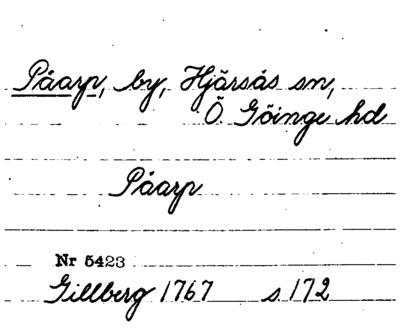 Påarp, by, Hjärsås sn,
Ö Göinge hd
Påarp
Nr 5423
Gillberg 1767 s. 172